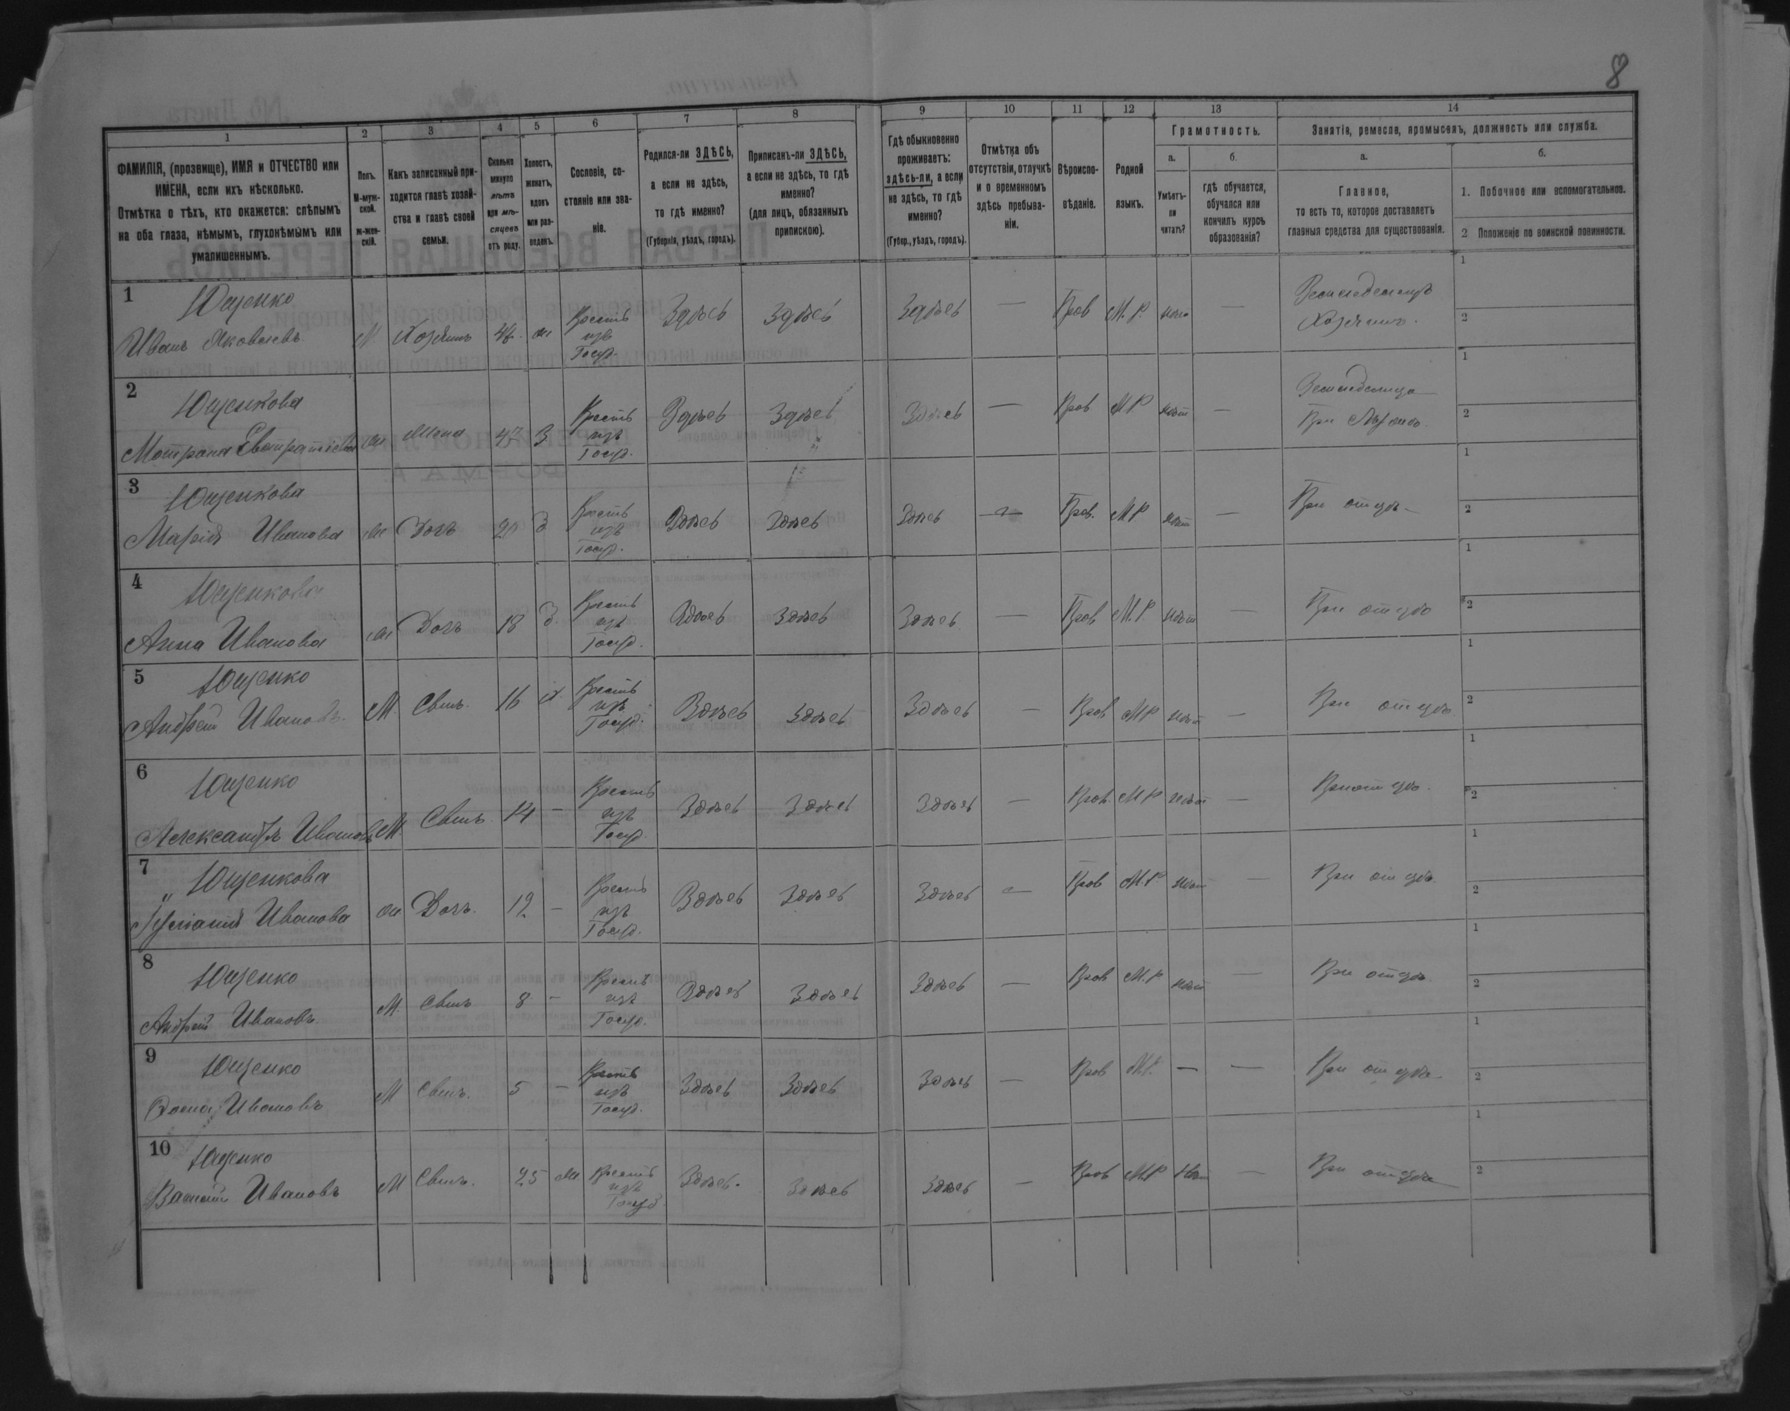 8
1 2 3 4 5 6 7 8 9 10 11 12 13 14
ФАМИЛІЯ, (прозвище), ИМЯ и ОТЧЕСТВО или
ИМЕНА, если ихъ нѣсколько.
Отмѣтка о тѣхъ, кто окажется: слѣпымъ
на оба глаза, нѣмымъ, глухонѣмымъ или
умалишеннымъ.
Полъ.
М-муж-
ской.
ж-жен-
скій.
Какъ записанный при-
ходится главѣ хозяй-
ства и главѣ своей
семьи.
Сколько
минуло
лѣтъ
или мѣ-
сяцевъ
отъ роду.
Холостъ,
женатъ,
вдовъ
или раз-
веденъ.
Сословіе, со-
стояніе или зва-
ніе.
Родился-ли ЗДѢСЬ,
а если не здѣсь,
то гдѣ именно?
(Губернія, уѣздъ, городъ).
Приписанъ-ли ЗДѢСЬ,
а если не здѣсь, то гдѣ
именно?
(для лицъ, обязанныхъ
припискою).
Гдѣ обыкновенно
проживаетъ:
здѣсь-ли, а если
не здѣсь, то гдѣ
именно?
(Губер., уѣздъ, городъ).
Отмѣтка объ
отсутствіи, отлучкѣ
и о временномъ
здѣсь пребыва-
ніи.
Вѣроиспо-
вѣданіе.
Родной
языкъ.
Грамотность.
а.
Умѣетъ-
ли
читать?
б.
гдѣ обучается,
обучался или
кончилъ курсъ
образованія?
Занятія, ремесло, промыселъ, должность или служба.
а.
Главное,
то есть то, которое доставляетъ
главныя средства для существованія.
б.
1. Побочное или вспомогательное.
2 Положеніе по воинской повинности.
1 Ющенко
Иванъ Яковлевъ М Хозяинъ Крестъ изъ Госуд. Здѣсь Здѣсь Здѣсь — Прав М.Р — Земледелецъ Хозяинъ
2 Ющенкова
Мотрона жена 47 З Крестъ изъ Госуд. Здѣсь Здѣсь Здѣсь — Прав М.Р нѣтъ — При
3 Ющенкова
Марія Иванова Дочь Крестъ изъ Госуд. Здѣсь Здѣсь Здѣсь — Прав. М.Р нѣтъ — При отцѣ
4 Ющенкова
Анна Иванова Дочь 18 Крестъ изъ Госуд. Здѣсь Здѣсь Здѣсь — Прав М.Р. нѣтъ — При отцѣ
5 Ющенко
Андрей Ивановъ М. Сынъ. 16 х. Крестъ изъ Госуд. Здѣсь Здѣсь Здѣсь — Прав М.Р нѣтъ — При отцѣ
6 Ющенко
Александръ Ивановъ М Сынъ 14 — Крестъ изъ Госуд. Здѣсь Здѣсь Здѣсь — Прав М.Р нѣтъ — При отцѣ
7 Ющенкова
Иванова Дочь. 12 — Крестъ изъ Госуд. Здѣсь Здѣсь Здѣсь — Прав М.Р нѣтъ — При отцѣ
8 Ющенко
Андрей Ивановъ М. Сынъ 8 — Крестъ изъ Госуд. Здѣсь Здѣсь Здѣсь — Прав М.Р нѣтъ — При отцѣ
9 Ющенко
Ивановъ М Сынъ. 5 — Крестъ изъ Госуд. Здѣсь Здѣсь Здѣсь — Прав М.Р. — — При отцѣ
10 Ющенко
Василій Ивановъ М Сынъ. 25 ж Крестъ изъ Госуд. Здѣсь. Здѣсь Здѣсь — Прав М.Р Нѣт — При отцѣ